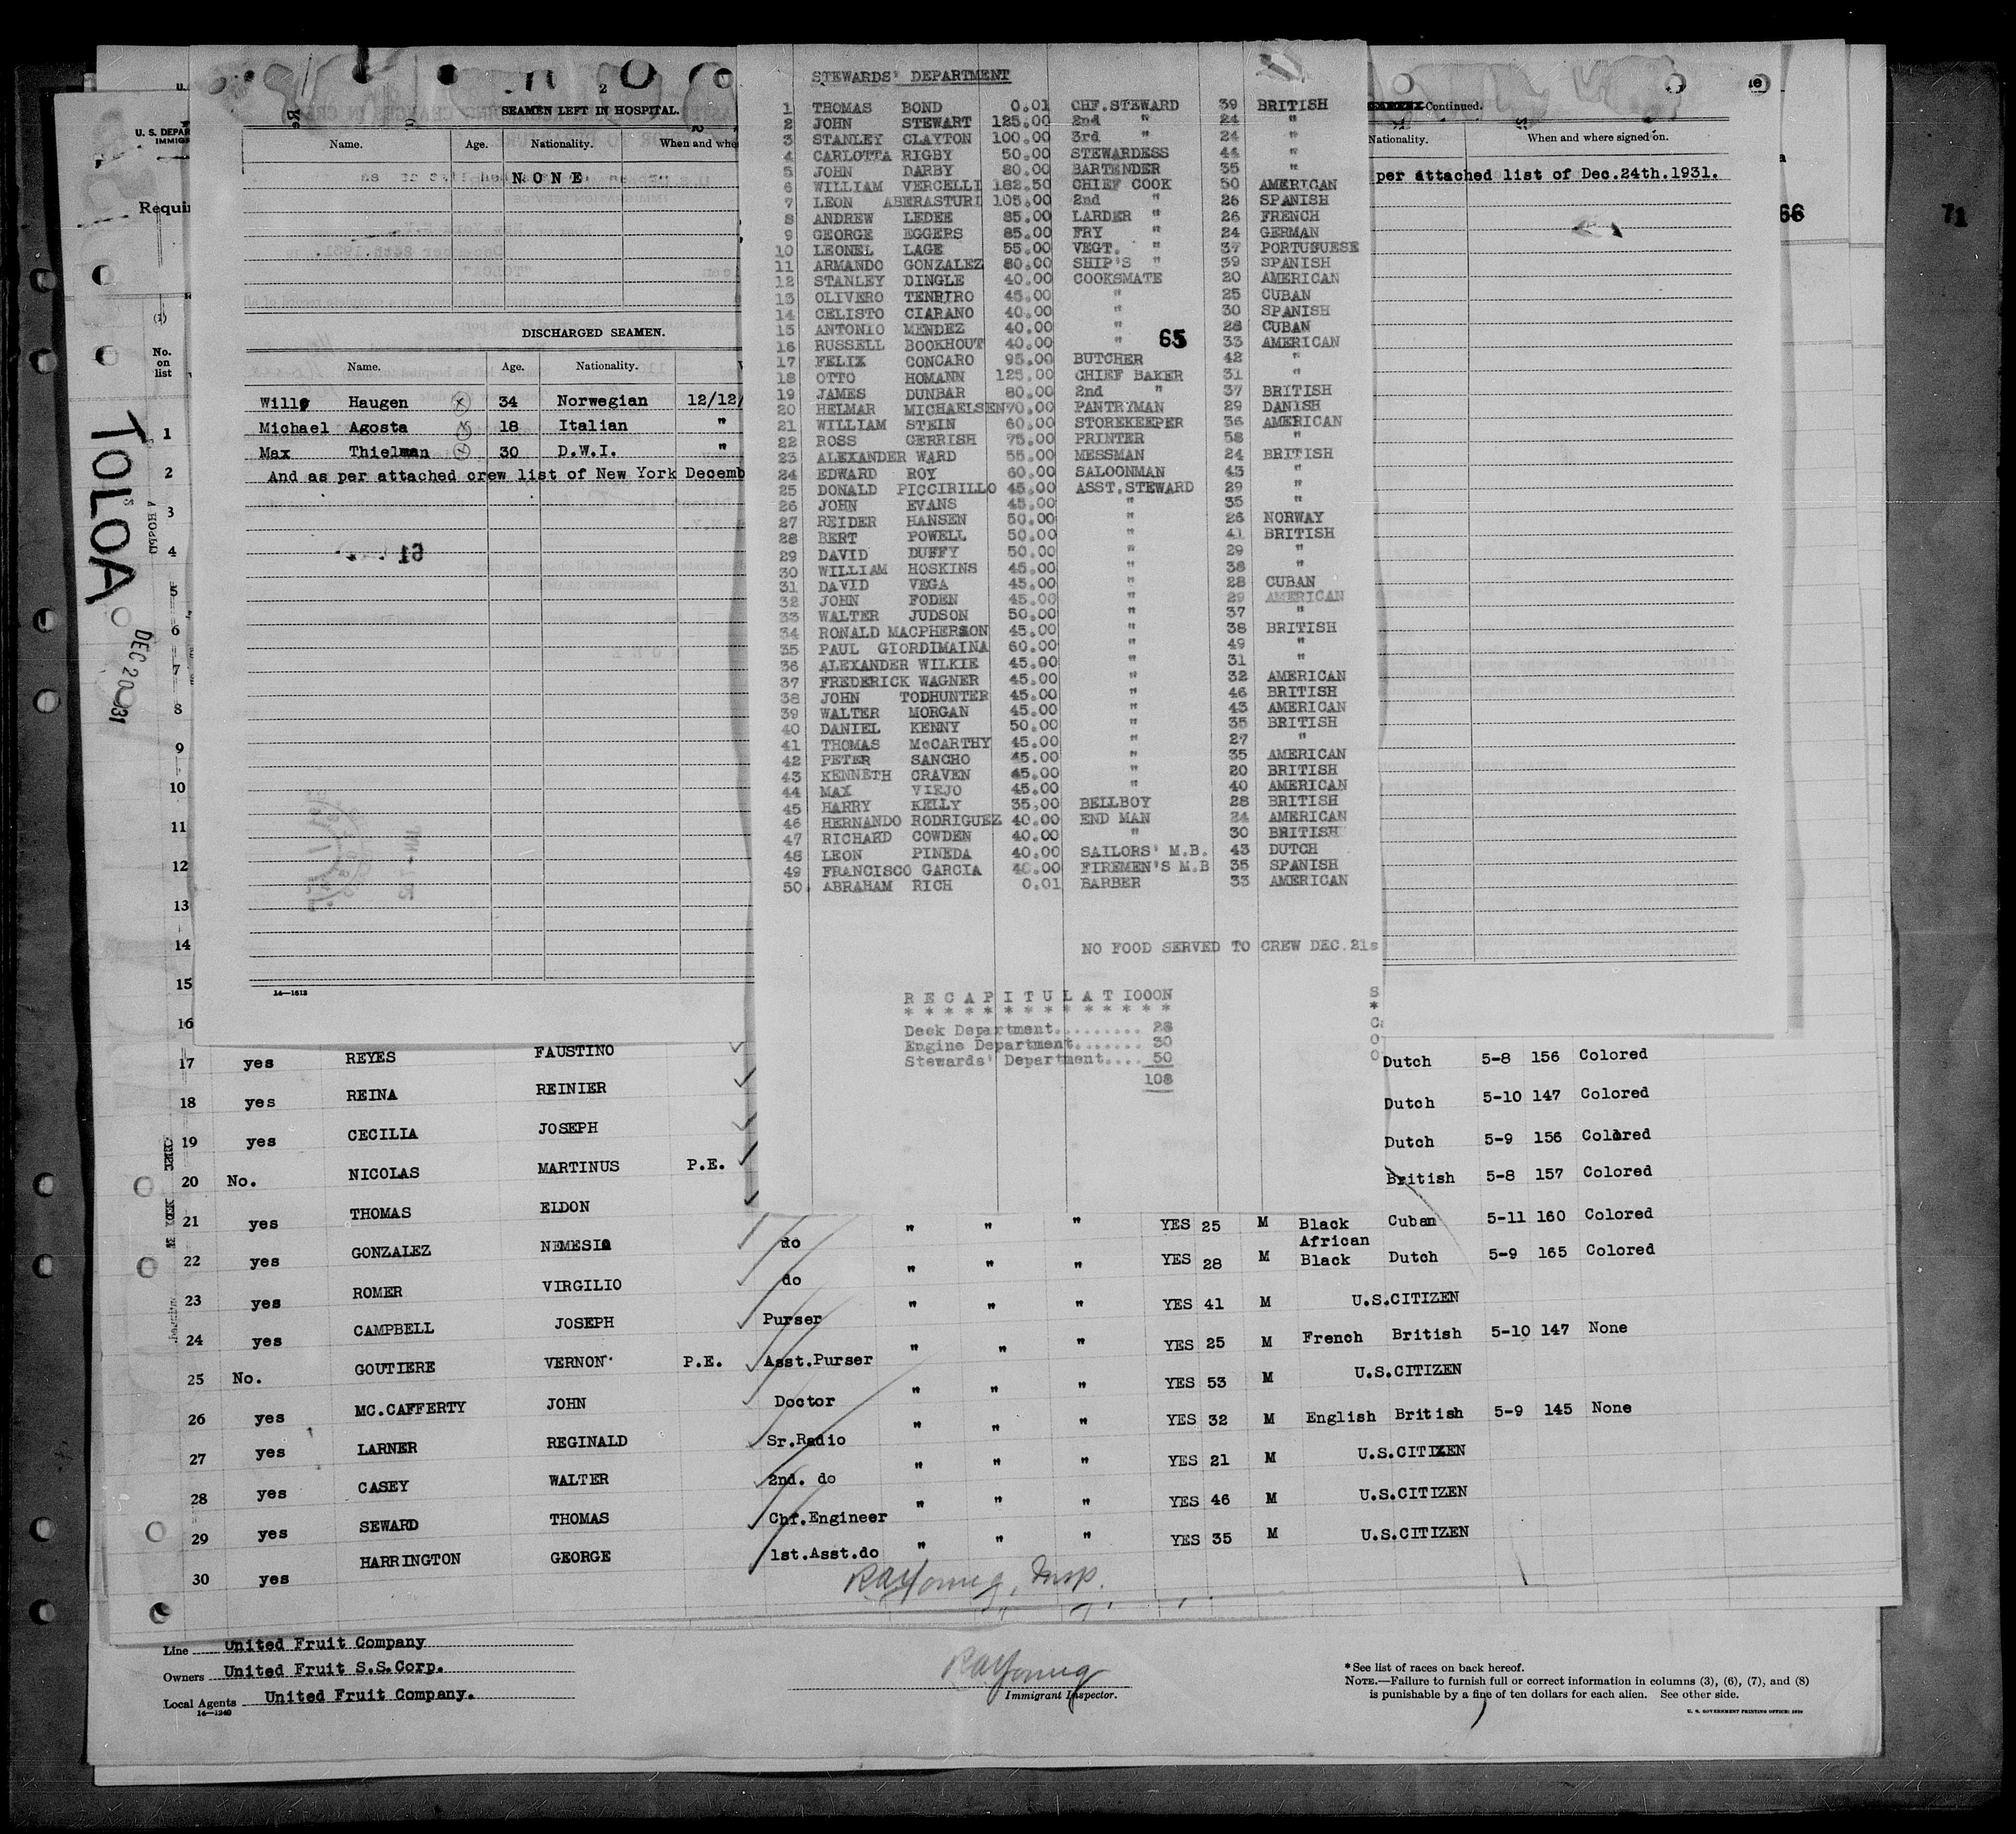 2
SEAMEN LEFT IN HOSPITAL.
Name. Age. Nationality.
NONE
DISCHARGED SEAMEN.
Name. Age. Nationality.
Haugen 34 Norwegian 12/12/
Michael Agosta 18 Italian "
Max Thielman 30 D.W.I. "
And as per attached crew list of New York Decemb
14—1613
STEWARDS' DEPARTMENT
1 THOMAS BOND 0.01 CHF.STEWARD 39 BRITISH
2 JOHN STEWART 125.00 2nd " 24 "
3 STANLEY CLAYTON 100.00 3rd " 24 "
4 CARLOTTA RIGBY 50.00 STEWARDESS 44 "
5 JOHN DARBY 80.00 BARTENDER 35 "
6 WILLIAM VERCELLI 182.50 CHIEF COOK 50 AMERICAN
7 LEON ABERASTURI 105.00 2nd " 26 SPANISH
8 ANDREW LEDEE 85.00 LARDER " 26 FRENCH
9 GEORGE EGGERS 85.00 FRY " 24 GERMAN
10 LEONEL LAGE 55.00 VEGT. " 37 PORTUGUESE
11 ARMANDO GONZALEZ 80.00 SHIP'S " 39 SPANISH
12 STANLEY DINGLE 40.00 COOKSMATE 20 AMERICAN
13 OLIVERO TENRIRO 45.00 " 25 CUBAN
14 CELISTO CIARANO 40.00 30 SPANISH
15 ANTONIO MENDEZ 40.00 " 28 CUBAN
65
16 RUSSELL BOOKHOUT 40.00 " 33 AMERICAN
17 FELIX CONCARO 95.00 BUTCHER 42 "
18 OTTO HOMANN 125.00 CHIEF BAKER 31 "
19 JAMES DUNBAR 80.00 2nd " 37 BRITISH
20 HELMAR MICHAELSEN 70.00 PANTRYMAN 29 DANISH
21 WILLIAM STEIN 60.00 STOREKEEPER 36 AMERICAN
22 ROSS GERRISH 75.00 PRINTER 58 "
23 ALEXANDER WARD 55.00 MESSMAN 24 BRITISH
24 EDWARD ROY 60.00 SALOONMAN 43 "
25 DONALD PICCIRILLO 45.00 ASST.STEWARD 29 "
26 JOHN EVANS 45.00 " 35 "
27 REIDER HANSEN 50.00 " 26 NORWAY
28 BERT POWELL 50.00 " 41 BRITISH
29 DAVID DUFFY 50.00 " 29 "
30 WILLIAM HOSKINS 45.00 " 38 "
31 DAVID VEGA 45.00 " 28 CUBAN
32 JOHN FODEN 45.00 " 29 AMERICAN
33 WALTER JUDSON 50.00 " 37 "
34 RONALD MACPHERSON 45.00 " 38 BRITISH
35 PAUL GIORDIMAINA 60.00 " 49 "
36 ALEXANDER WILKIE 45.00 " 31 "
37 FREDERICK WAGNER 45.00 " 32 AMERICAN
38 JOHN TODHUNTER 45.00 " 46 BRITISH
39 WALTER MORGAN 45.00 " 43 AMERICAN
40 DANIEL KENNY 50.00 " 35 BRITISH
41 THOMAS McCARTHY 45.00 " 27 "
42 PETER SANCHO 45.00 " 35 AMERICAN
43 KENNETH CRAVEN 45.00 " 20 BRITISH
44 MAX VIEJO 45.00 " 40 AMERICAN
45 HARRY KELLY 35.00 BELLBOY 28 BRITISH
46 HERNANDO RODRIGUEZ 40.00 END MAN 24 AMERICAN
47 RICHARD COWDEN 40.00 " 30 BRITISH
48 LEON PINEDA 40.00 SAILORS' M.B. 43 DUTCH
49 FRANCISCO GARCIA 40.00 FIREMEN'S M.B 35 SPANISH
50 ABRAHAM RICH 0.01 BARBER 33 AMERICAN
NO FOOD SERVED TO CREW DEC.21s
R E C A P I T U L A T IOOON
* * * * * * * * * * * * * *
Deck Department......... 28
Engine Department....... 30
Stewards' Department.... 50
108
Continued.
Nationality. When and where signed on.
per attached list of Dec.24th.1931.
66
71
U. S. DEPAR
IMMIG
Requi
(1)
No.
on
list
TOLOA
DEC 20 31
1
2
3
4
5
6
7
8
9
10
11
12
13
14
15
16
17 yes REYES FAUSTINO Dutch 5-8 156 Colored
18 yes REINA REINIER Dutch 5-10 147 Colored
19 yes CECILIA JOSEPH Dutch 5-9 156 Colored
20 No. NICOLAS MARTINUS P.E. British 5-8 157 Colored
21 yes THOMAS ELDON do " " " YES 25 M Black Cuban 5-11 160 Colored
African
22 yes GONZALEZ NEMESIO do " " " YES 28 M Black Dutch 5-9 165 Colored
23 yes ROMER VIRGILIO Purser " " " YES 41 M U.S.CITIZEN
24 yes CAMPBELL JOSEPH Asst.Purser " " " YES 25 M French British 5-10 147 None
25 No. GOUTIERE VERNON P.E. Doctor " " " YES 53 M U.S.CITIZEN
26 yes MC.CAFFERTY JOHN Sr.Radio " " " YES 32 M English British 5-9 145 None
27 yes LARNER REGINALD 2nd. do " " " YES 21 M U.S.CITIZEN
28 yes CASEY WALTER Chf.Engineer " " " YES 46 M U.S.CITIZEN
29 yes SEWARD THOMAS 1st.Asst.do " " " YES 35 M U.S.CITIZEN
30 yes HARRINGTON GEORGE
RAYoung, Insp.
Line United Fruit Company
Owners United Fruit S.S.Corp.
Local Agents United Fruit Company.
14—1240
RAYoung
Immigrant Inspector.
*See list of races on back hereof.
NOTE.—Failure to furnish full or correct information in columns (3), (6), (7), and (8)
is punishable by a fine of ten dollars for each alien. See other side.
U. S. GOVERNMENT PRINTING OFFICE: